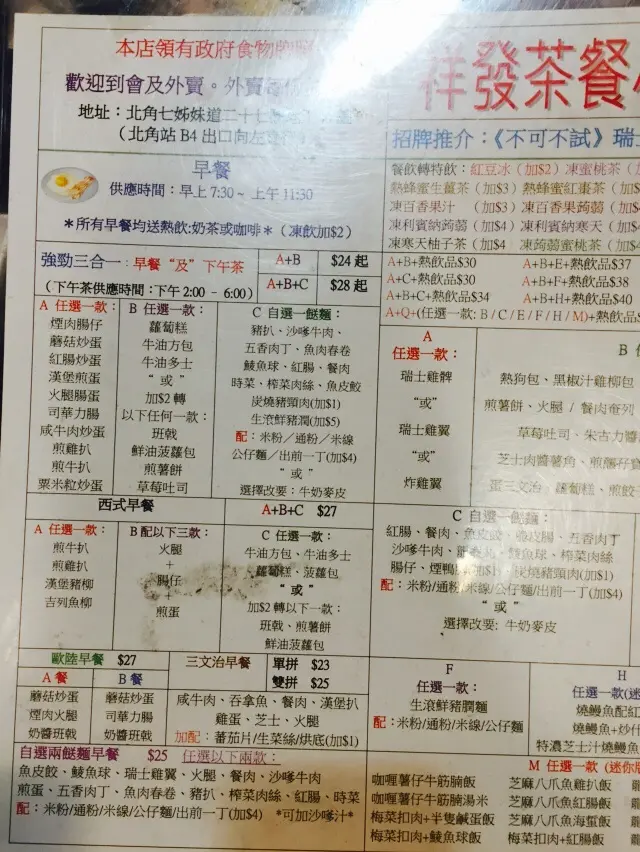 本店領有政府食物
歡迎到會及外賣。外賣
地址：北角七姊妹道二十七
（北角站 B4 出口向左
早餐
供應時間：早上 7:30～ 上午 11:30
＊所有早餐均送熱飲:奶茶或咖啡＊（凍飲加$2）
強勁三合一：早餐“及”下午茶
（下午茶供應時間：下午 2:00 － 6:00）
A+B $24 起
A+B+C $28 起
A 任選一款：
煙肉腸仔
蘑菇炒蛋
紅腸炒蛋
漢堡煎蛋
火腿腸蛋
司華力腸
咸牛肉炒蛋
煎雞扒
煎牛扒
粟米粒炒蛋
B 任選一款：
蘿蔔糕
牛油方包
牛油多士
“ 或 ”
加$2 轉
以下任何一款:
班戟
鮮油菠蘿包
煎薯餅
草莓吐司
C 自選一餸麵：
豬扒、沙嗲牛肉、
五香肉丁、魚肉春卷
鯪魚球、紅腸、餐肉
時菜、榨菜肉絲、魚皮餃
炭燒豬頸肉(加$1)
生滾鮮豬潤(加$5)
配：米粉／通粉／米線
公仔麵／出前一丁(加$4)
“ 或 ”
選擇改要：牛奶麥皮
西式早餐
A+B+C $27
A 任選一款：
煎牛扒
煎雞扒
漢堡豬柳
吉列魚柳
B 配以下三款：
火腿
+
腸仔
+
煎蛋
C 任選一款：
牛油方包、牛油多士
蘿蔔糕、菠蘿包
“或”
加$2 轉以下一款：
班戟、煎薯餅
鮮油菠蘿包
歐陸早餐 $27
A 餐 B 餐
蘑菇炒蛋 蘑菇炒蛋
煙肉火腿 司華力腸
奶醬班戟 奶醬班戟
三文治早餐 單拼 $23
雙拼 $25
咸牛肉、吞拿魚、餐肉、漢堡扒
雞蛋、芝士、火腿
加配：蕃茄片/生菜絲/烘底(加$1)
自選兩餸麵早餐 $25 任選以下兩款：
魚皮餃、鯪魚球、瑞士雞翼、火腿、餐肉、沙嗲牛肉
煎蛋、五香肉丁、魚肉春卷、豬扒、榨菜肉絲、紅腸、時菜
配：米粉/通粉/米線/公仔麵/出前一丁(加$4) *可加沙嗲汁*
祥發茶餐
招牌推介：《不可不試》瑞
餐飲轉特飲：紅豆冰（加$2） 凍蜜桃茶（
熱蜂蜜生薑茶（加$3） 熱蜂蜜紅棗茶（加
凍百香果汁 （加$3） 凍百香果蒟蒻（加
凍利賓納蒟蒻（加$4） 凍利賓納寒天（加
凍寒天柚子茶（加$4 凍蒟蒻蜜桃茶（加
A+B+熱飲品$30 A+B+E+熱飲品$37
A+C+熱飲品$30 A+B+F+熱飲品$38
A+B+C+熱飲品$34 A+B+H+熱飲品$40
A+Q+(任選一款: B / C / E / F / H / M)+熱飲品$
A
任選一款：
瑞士雞髀
“或”
瑞士雞翼
“或”
炸雞翼
B
熱狗包、黑椒汁雞柳包
煎薯餅、火腿 / 餐肉奄列
草莓吐司、朱古力醬
芝士肉醬薯角、煎釀
蛋三文治 蘿蔔糕、煎餃
C 自選一餸麵：
紅腸、餐肉、魚皮餃、 五香肉丁
沙嗲牛肉、 鯪魚球、榨菜肉絲
腸仔、煙鴨 炭燒豬頸肉(加$1)
配：米粉/通粉/米線/公仔麵/出前一丁(加$4)
“ 或 ”
選擇改要: 牛奶麥皮
F
任選一款：
生滾鮮豬潤麵
配：米粉/通粉/米線/公仔麵
H
任選一款(迷
燒鰻魚配紅
燒鰻魚+炒
特濃芝士汁燒鰻魚
M 任選一款 (迷你版
咖喱薯仔牛筋腩飯 芝麻八爪魚雞扒飯
咖喱薯仔牛筋腩湯米 芝麻八爪魚紅腸飯
梅菜扣肉+半隻鹹蛋飯 芝麻八爪魚海蜇飯
梅菜扣肉+鯪魚球飯 梅菜扣肉+紅腸飯